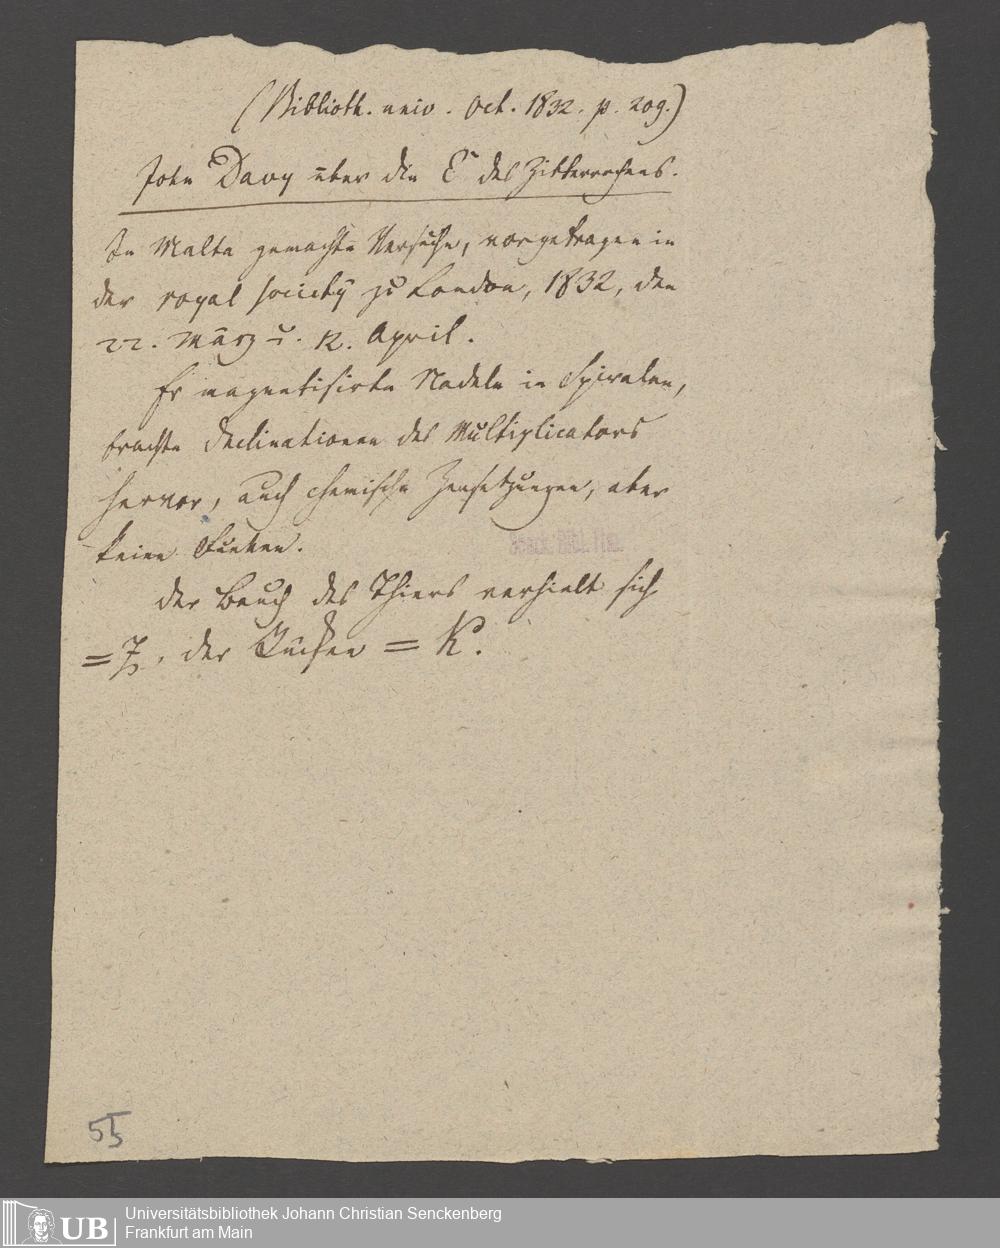 (Biblioth. univ. Oct. 1832. p. 209.)
John Davy über die E des Zitterrochens.
In Malta gemachte Versuche, vorgetragen in
der royal society zu London, 1832, den
22. März u. 12. April.
Er magnetisirte Nadeln in Spiralen,
brachte Declinationen des Multiplicators
hervor, auch chemische Zersetzungen, aber
keine Funken.
Der Bauch des Thiers verhielt sich
= Z, der Rücken = K.
55
UB
Universitätsbibliothek Johann Christian Senckenberg
Frankfurt am Main